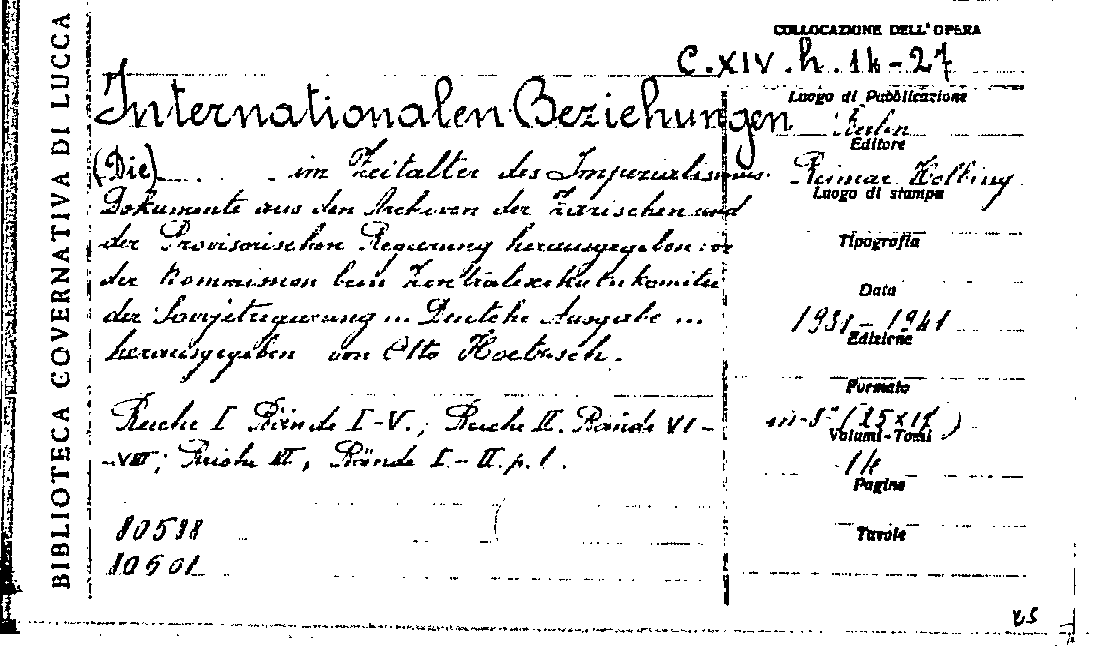 BIBLIOTECA GOVERNATIVA DI LUCCA
COLLOCAZIONE DELL'OPERA
C.XIV.h.14-27
Internationalen Beziehungen
(Die) im Zeitalter des Imperialismus.
Dokumente aus den Archiven der Zarischen und
der Provisorischen Regierung herausgegeben von
der Kommission beim Zentralexekutivkomitee
der Sovjetregierung ... Deutsche Ausgabe ...
herausgegeben von Otto Hoetzsch.
Reiche I Bände I-V.; Reiche II. Bände VI-
-VIII; Reiche III, Bände I-II. p. 1.
10601
Luogo di Pubblicazione
Berlin
Editore
Reimar Hobbing
Luogo di stampa
Tipografia
Data
1931-1941
Edizione
Formato
in-8° (25x17)
Volumi-Tomi
14
Pagine
Tavole